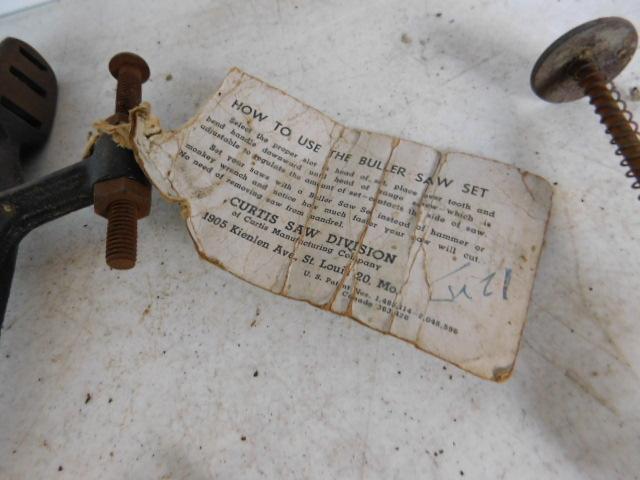 HOW TO USE THE BULLER SAW SET
Select the proper slot in head of set, place over tooth and
bend handle downward until head of gauge screw, which is
adjustable to regulate the amount of set—engages the side of saw.
Set your saws with a Buller Saw Set instead of hammer or
monkey wrench and notice how much faster your saw will cut.
No need of removing saw from mandrel.
CURTIS SAW DIVISION
of Curtis Manufacturing Company
1905 Kienlen Ave., St. Louis 20, Mo.
U. S. Patent Nos.
Canada 363,426